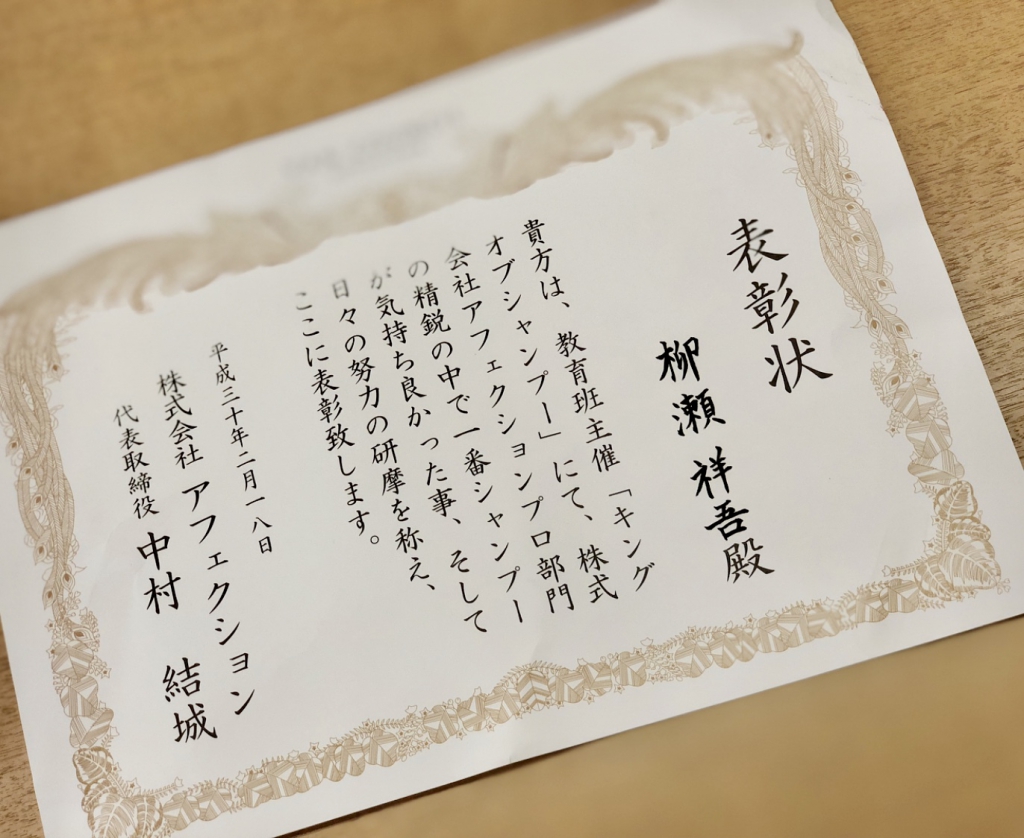 表彰状
柳瀬 祥吾殿
貴方は、教育班主催「キング
オブシャンプー」にて、株式
会社アフェクションプロ部門
の精鋭の中で一番シャンプー
が気持ち良かった事、そして
日々の努力の研摩を称え、
ここに表彰致します。
平成三十年二月一八日
株式会社 アフェクション
代表取締役 中村 結城